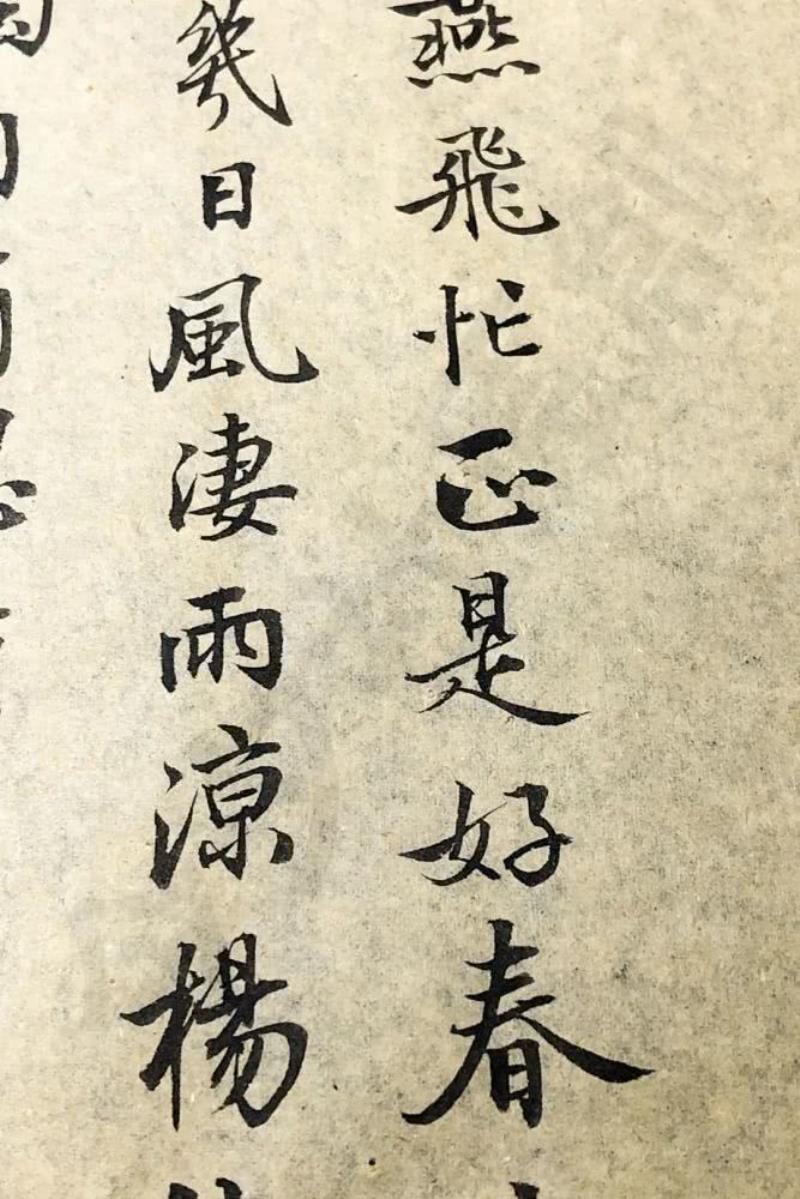 燕飛忙正是好春
幾日風淒雨涼楊